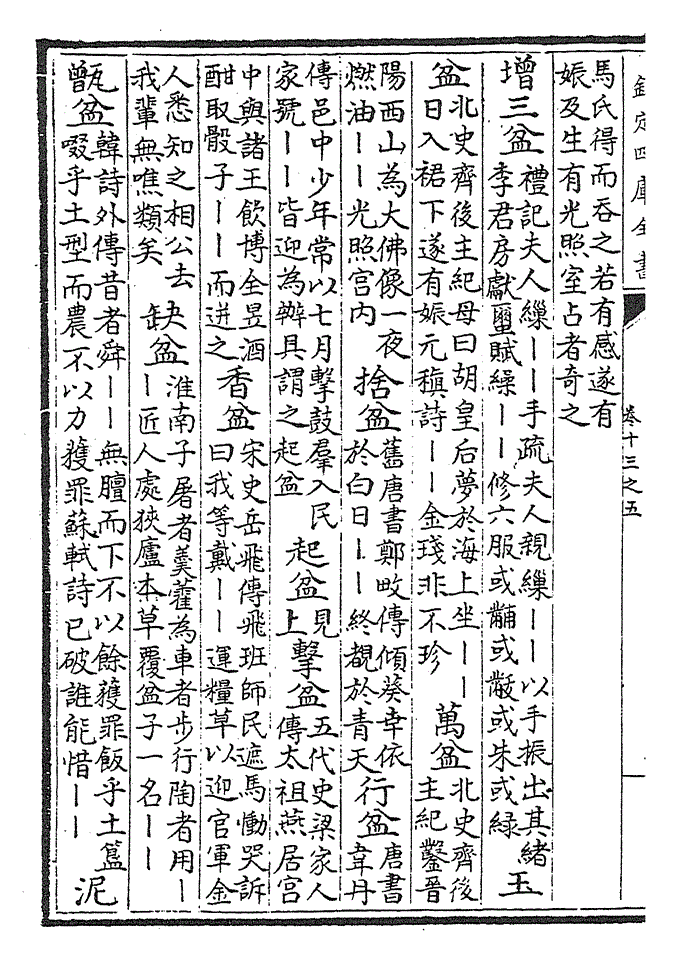 欽定四庫全書
卷十三之五
馬氏得而吞之若有感遂有
娠及生有光照室占者奇之
增三盆
禮記夫人繅丨丨手疏夫人親繅丨丨以手振出其緒
李君房獻璽賦繰丨丨修六服或黼或黻或朱或緑
玉
盆
北史齊後主紀母曰胡皇后夢於海上坐丨丨
日入裙下遂有娠元稹詩丨丨金琖非不珍
萬盆
北史齊後
主紀鑿晉
陽西山為大佛像一夜
燃油丨丨光照宫内
捨盆
舊唐書鄭畋傳傾葵幸依
於白日丨丨終覩於青天
行盆
唐書
韋丹
傳邑中少年常以七月擊鼓羣入民
家號丨丨皆迎為辦具謂之起盆
起盆
見
上
擊盆
五代史梁家人
傳太祖燕居宫
中與諸王飲博全昱酒
酣取骰子丨丨而迸之
香盆
宋史岳飛傳飛班師民遮馬慟哭訴
曰我等戴丨丨運糧草以迎官軍金
人悉知之相公去
我輩無噍類矣
缺盆
淮南子屠者羹藿為車者步行陶者用丨
丨匠人處狹廬本草覆盆子一名丨丨
甑盆
韓詩外傳昔者舜丨丨無膻而下不以餘獲罪飯乎土簋
啜乎土型而農不以力獲罪蘇軾詩已破誰能惜丨丨
泥